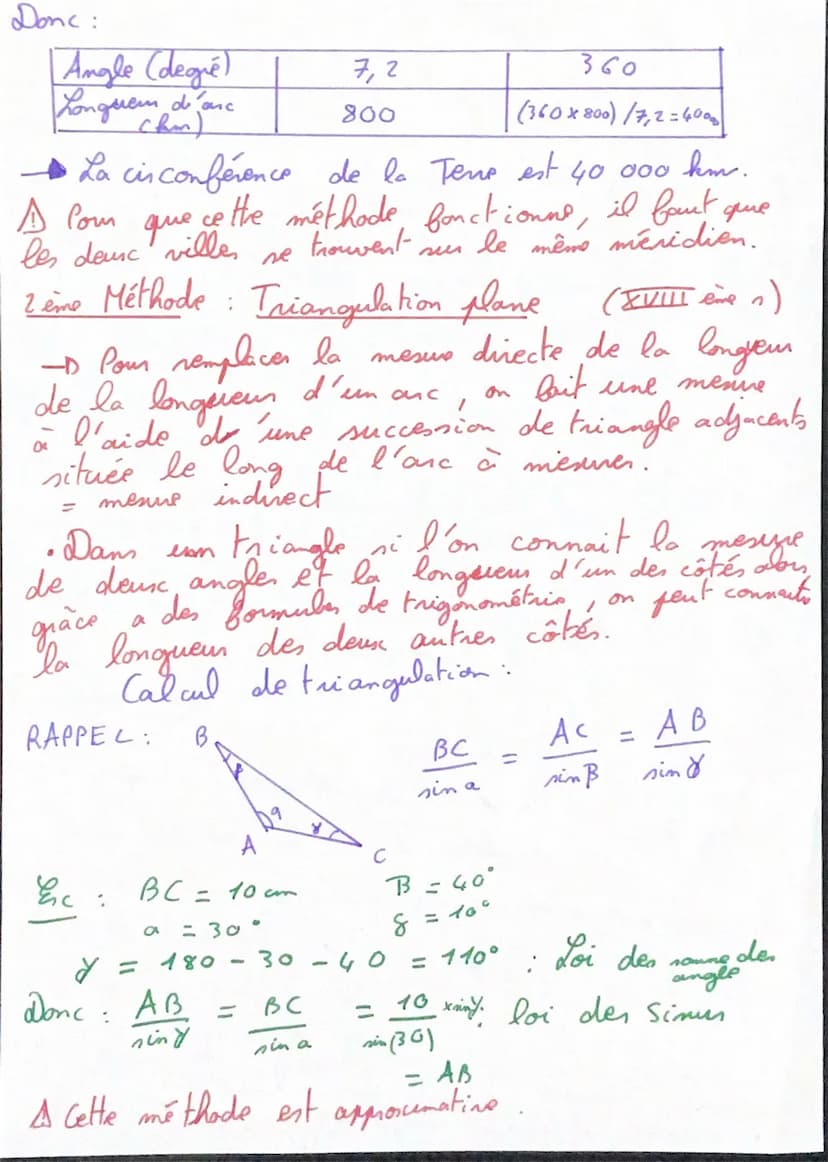 Donc :
Angle (degré) 7,2 360
Longueur d'arc (km) 800 (360 x 800) / 7,2 = 40000
→ La circonférence de la Terre est 40 000 km.
⚠ Pour que cette méthode fonctionne, il faut que
les deux villes se trouvent sur le même méridien.
2ème Méthode : Triangulation plane (XVIII ème s)
→ Pour remplacer la mesure directe de la longueur
de la longueur d'un arc, on fait une mesure
à l'aide d'une succession de triangle adjacents
située le long de l'arc à mesurer.
= mesure indirect
• Dans un triangle si l'on connait la mesure
de deux angles et la longueur d'un des côtés alors
grâce a des formules de trigonométrie, on peut connaitre
la longueur des deux autres côtés.
Calcul de triangulation :
RAPPEL : B
BC / sin a = AC / sin β = AB / sin γ
β
a
γ
A
C
Ex : BC = 10 cm B = 40°
a = 30° γ = 10°
γ = 180 - 30 - 40 = 110° : Loi des somme des angle
Donc : AB / sin γ = BC / sin a = 10 / sin(30) x sin γ : loi des Sinus
= AB
⚠ Cette méthode est approximative.